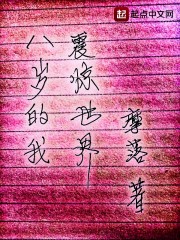 起点中文网
八岁的我
震惊世界
落 著